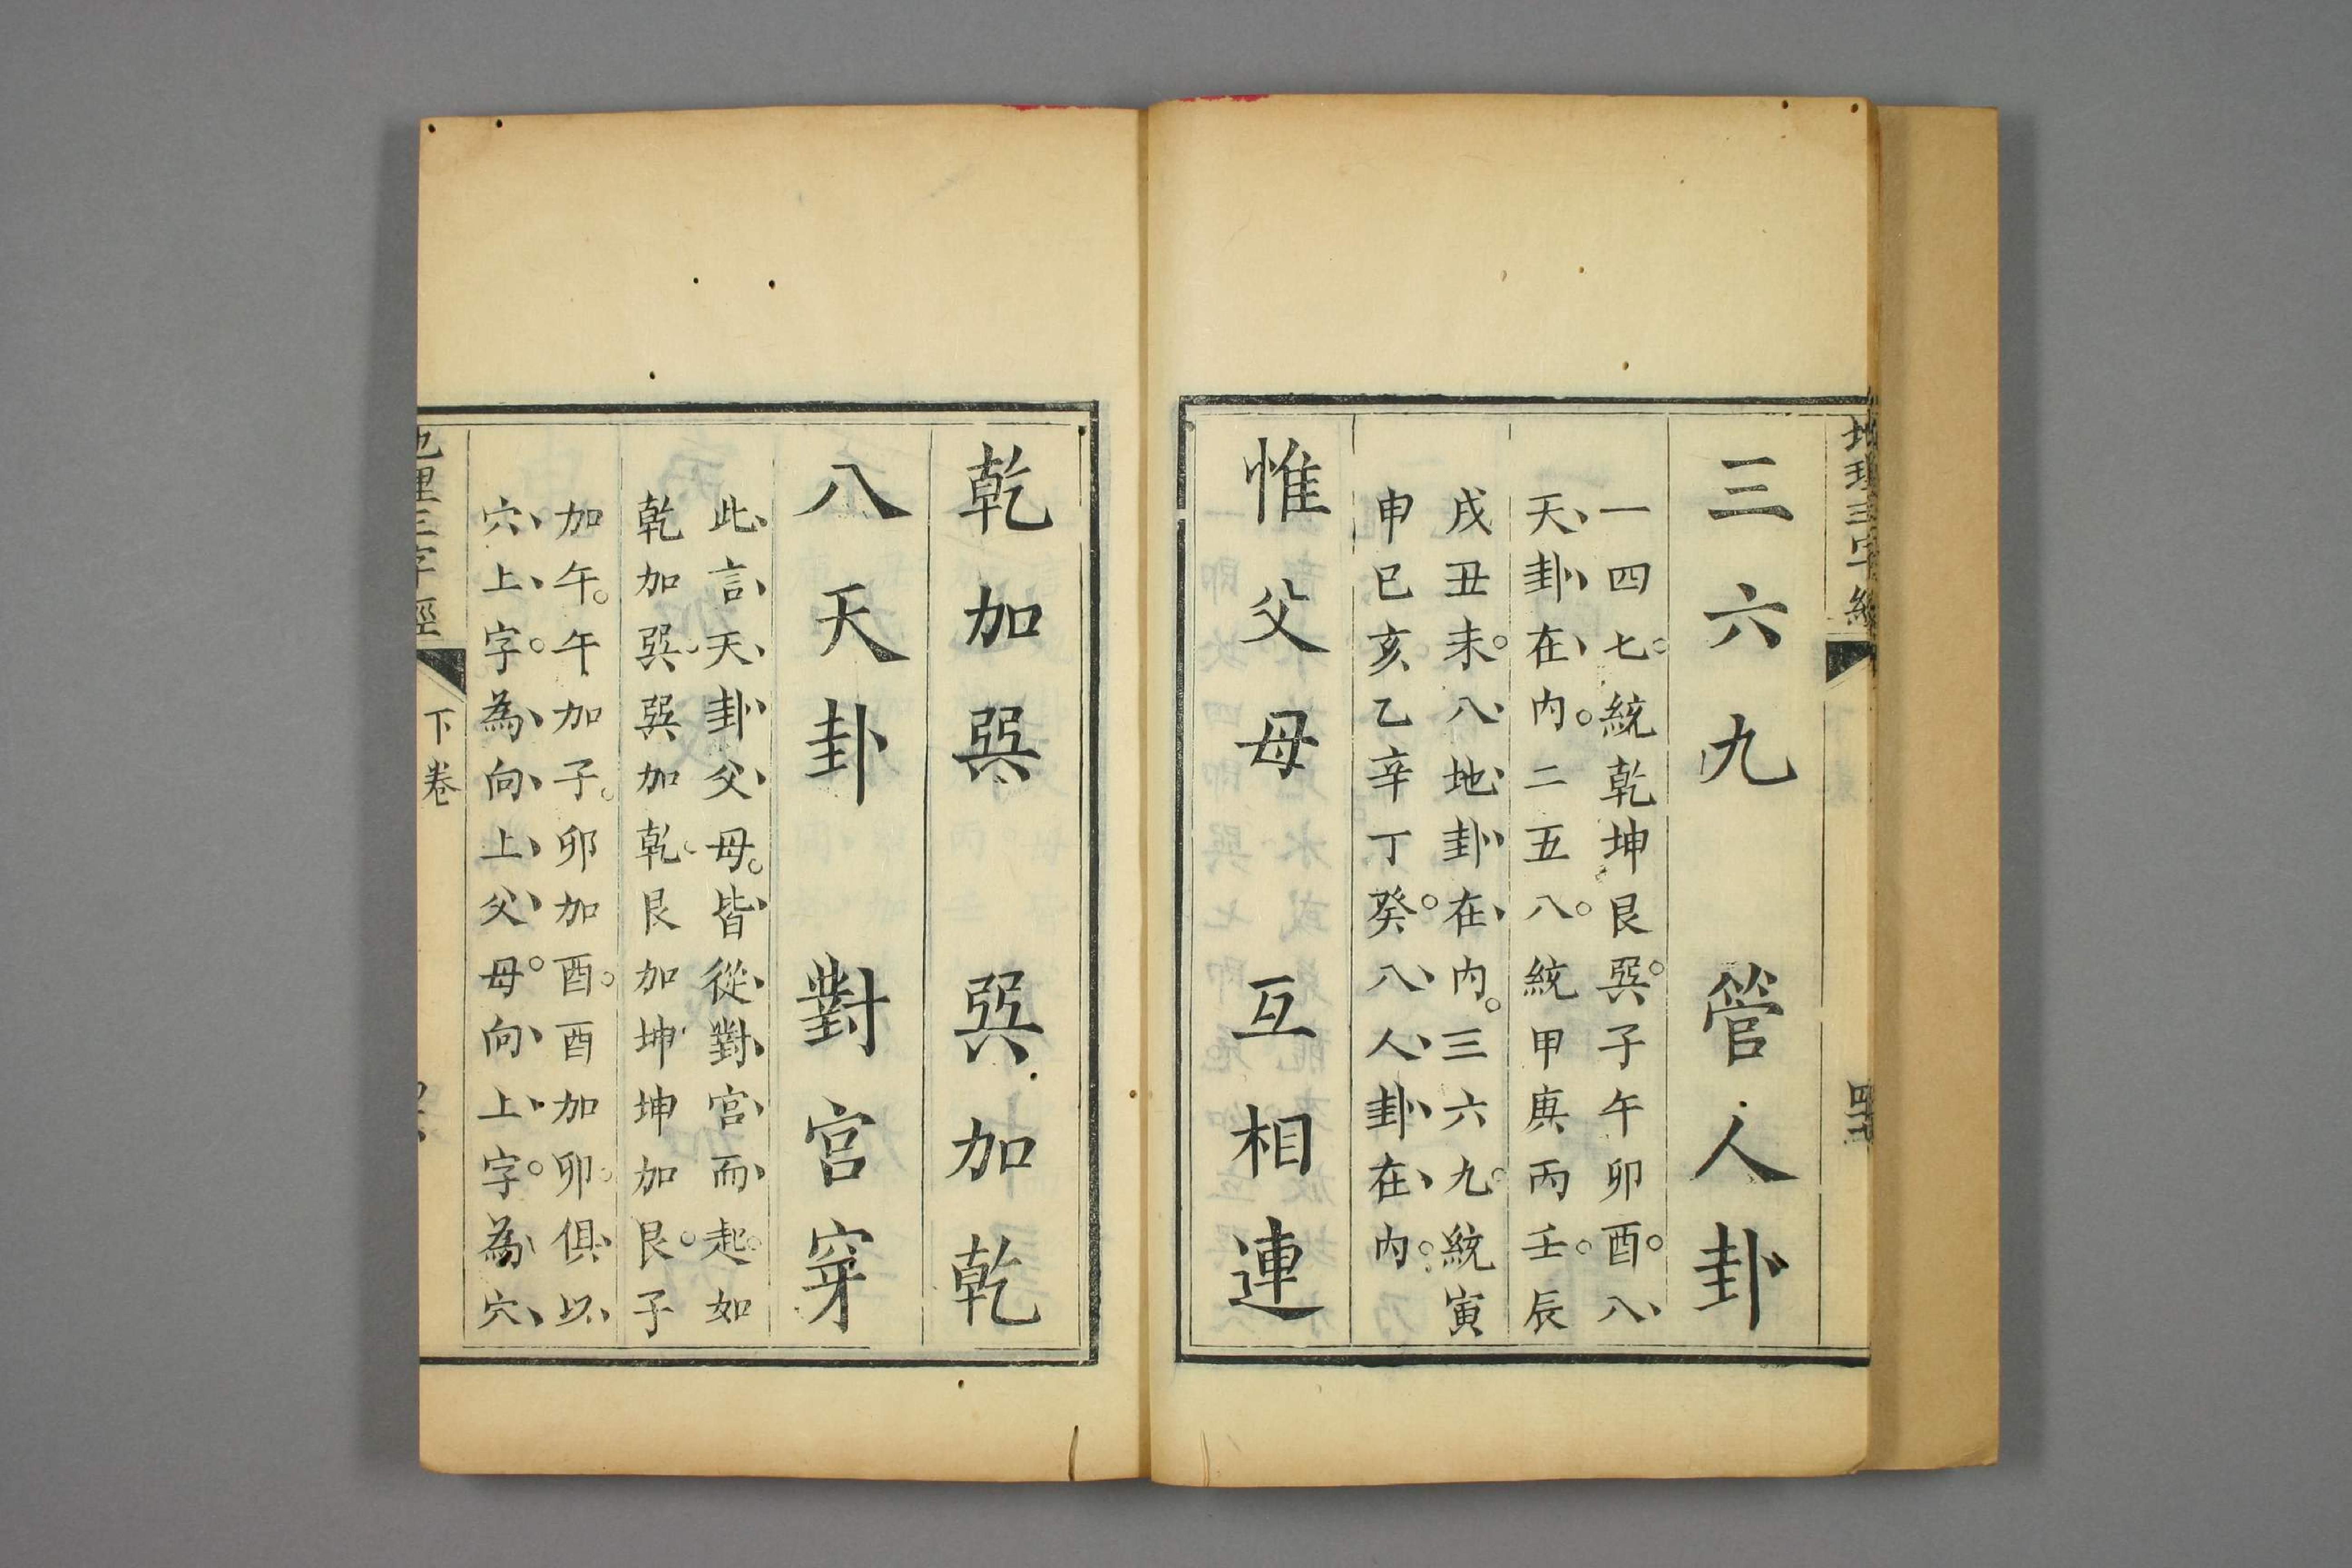 地理三字經
三六九 管人卦
一四七。統乾坤艮巽。子午卯酉。八
天卦在內。二五八。統甲庚丙壬。辰
戌丑未。八地卦在內。三六九。統寅
申巳亥。乙辛丁癸。八人卦在內。
惟父母 互相連
乾加巽 巽加乾
八天卦 對宮穿
此言天卦父母。皆從對宮而起。如
乾加巽。巽加乾。艮加坤。坤加艮。子
加午。午加子。卯加酉。酉加卯。俱以
穴上字。為向上父母。向上字。為穴
地理三字經
下卷